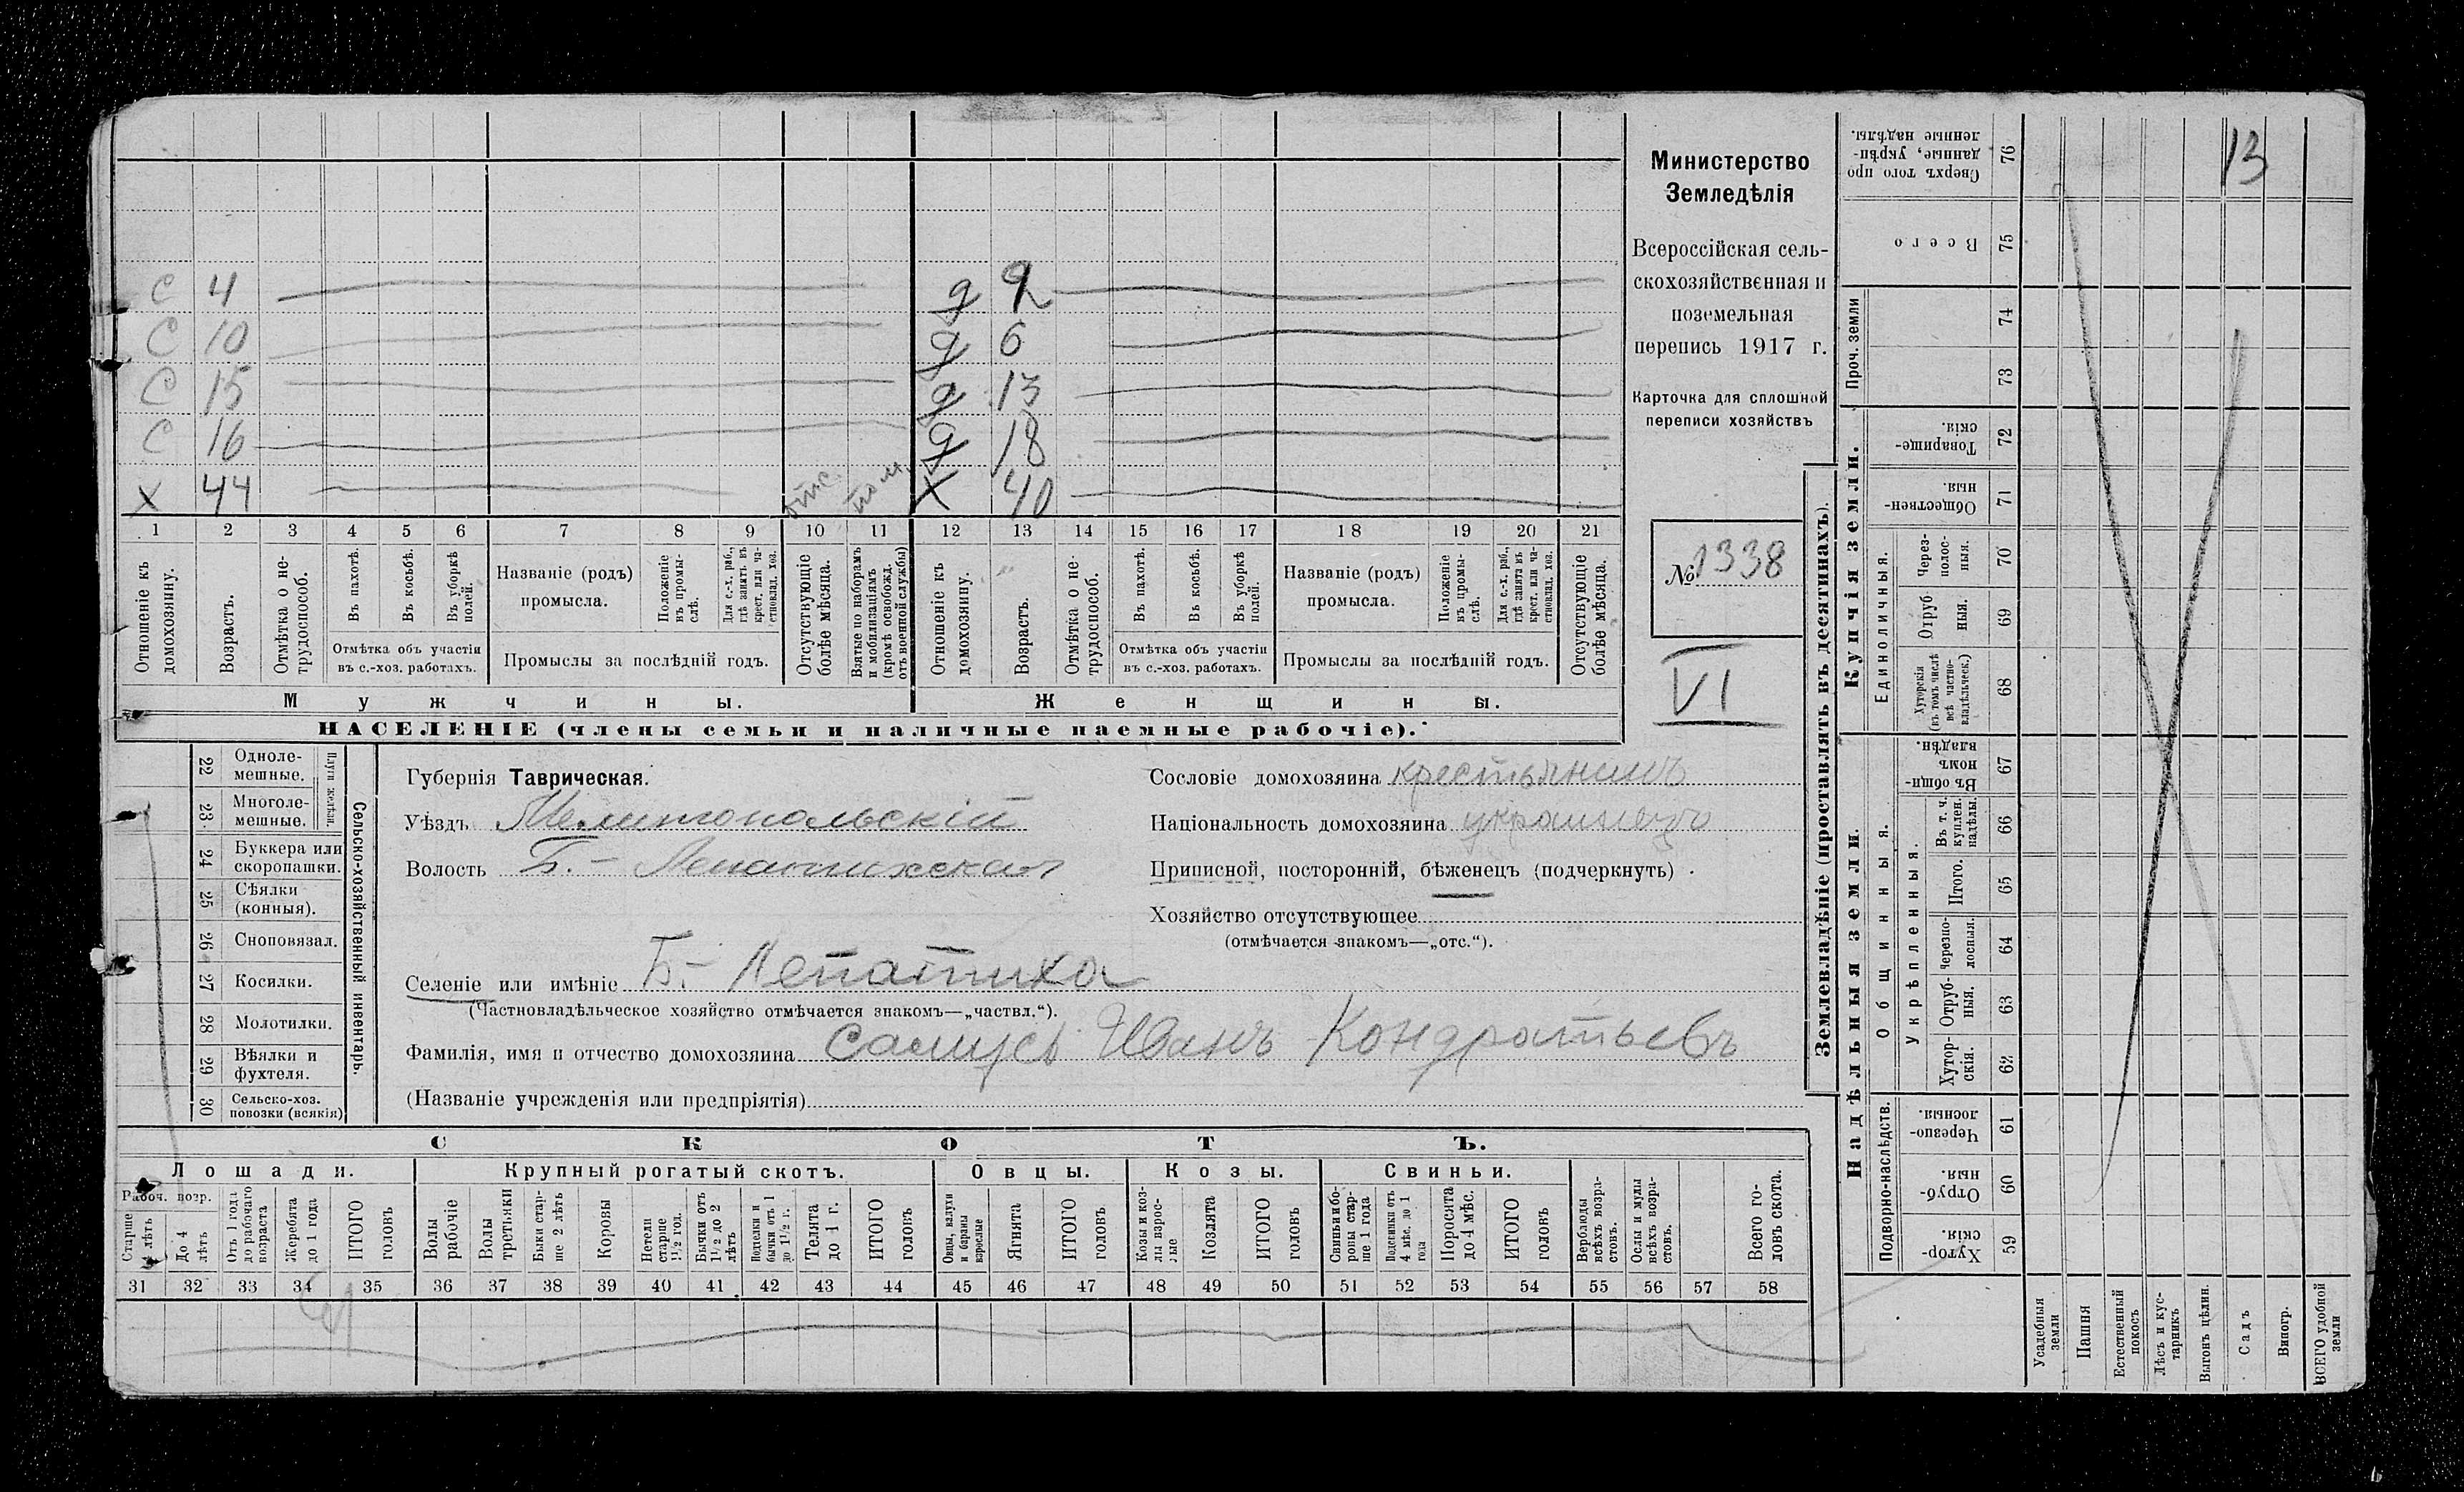 С 4 д 2
С 10 д 6
С 15 д 13
С 16 д 18
Х 44 отс. Х 40
1 2 3 4 5 6 7 8 9 10 11 12 13 14 15 16 17 18 19 20 21
Отношеніе къ домохозяину.
Возрастъ.
Отмѣтка о нетрудоспособ.
Въ пахотѣ.
Въ косьбѣ.
Въ уборкѣ полей.
Отмѣтка объ участіи
въ с.-хоз. работахъ.
Названіе (родъ)
промысла.
Положеніе въ промыслѣ.
Для с.-х. раб., гдѣ занятъ въ крест. или частновлад. хоз.
Промыслы за послѣдній годъ.
Отсутствующіе болѣе мѣсяца.
Взятые по наборамъ и мобилизаціямъ (кромѣ освобожд. отъ военной службы)
Отношеніе къ домохозяину.
Возрастъ.
Отмѣтка о нетрудоспособ.
Въ пахотѣ.
Въ косьбѣ.
Въ уборкѣ полей.
Отмѣтка объ участіи
въ с.-хоз. работахъ.
Названіе (родъ)
промысла.
Положеніе въ промыслѣ.
Для с.-х. раб., гдѣ занята въ крест. или частновлад. хоз.
Промыслы за послѣдній годъ.
Отсутствующіе болѣе мѣсяца.
Мужчины.
Женщины.
НАСЕЛЕНІЕ (члены семьи и наличные наемные рабочіе).
Министерство
Земледѣлія
Всероссійская сель-
скохозяйственная и
поземельная
перепись 1917 г.
Карточка для сплошной
переписи хозяйствъ
№ 1338
VI
22 Одноле-
мешные.
23 Многоле-
мешные.
Плуги желѣзн.
24 Буккера или
скоропашки.
25 Сѣялки
(конныя).
26 Сноповязал.
27 Косилки.
28 Молотилки.
29 Вѣялки и
фухтеля.
30 Сельско-хоз.
повозки (всякія)
Сельско-хозяйственный инвентарь.
Губернія Таврическая.
Уѣздъ Мелитопольскій
Волость Б.-Лепатихская
Селеніе или имѣніе Б.- Лепатиха
(Частновладѣльческое хозяйство отмѣчается знакомъ—„частвл.“).
Фамилія, имя и отчество домохозяина Самусь Иванъ Кондратьевъ
(Названіе учрежденія или предпріятія)
Сословіе домохозяина крестьянинъ
Національность домохозяина украинецъ
Приписной, посторонній, бѣженецъ (подчеркнуть)
Хозяйство отсутствующее
(отмѣчается знакомъ—„отс.“).
СКОТЪ.
Лошади.
Рабоч. возр.
До 4 лѣтъ
Отъ 1 года до рабочаго возраста
Жеребята до 1 года
ИТОГО головъ
Крупный рогатый скотъ.
Волы рабочіе
Волы третьяки
Быки старше 2 лѣтъ
Коровы
Нетели старше 1½ год.
Бычки отъ 1½ до 2 лѣтъ
Телята до 1 г.
ИТОГО головъ
Овцы.
Овцы, валухи и бараны взрослые
Ягнята
ИТОГО головъ
Козы.
Козы и козлы взрослые
Козлята
ИТОГО головъ
Свиньи.
Свиньи и боровы старше 1 года
Подсвинки отъ 4 мѣс. до 1 года
Поросята до 4 мѣс.
ИТОГО головъ
Верблюды всѣхъ возрастовъ.
Ослы и мулы всѣхъ возрастовъ.
Всего головъ скота.
31 32 33 34 35 36 37 38 39 40 41 42 43 44 45 46 47 48 49 50 51 52 53 54 55 56 57 58
Землевладѣніе (проставлять въ десятинахъ).
Купчія земли.
Проч. земли
Единоличныя.
Надѣльныя земли.
Общинныя.
Укрѣпленныя.
Подворно-наслѣдств.
76 Сверхъ того проданные, укрѣпленные надѣлы.
13
75 Всего
74
73
72 Товарищескія.
71 Общественныя.
70 Черезполосныя.
69 Отрубныя.
68 Хуторскія (въ томъ числѣ всѣ частновладѣльческ.)
67 Въ общинномъ владѣн.
66 Въ т. ч. куплен. надѣлы.
65 Итого.
64 Черезполосныя.
63 Отрубныя.
62 Хуторскія.
61 Черезполосныя.
60 Отрубныя.
59 Хуторскія.
Усадебныя земли
Пашня
Естественный покосъ
Лѣсъ и кустарникъ
Выгонъ цѣлин.
Садъ
Виногр.
ВСЕГО удобной земли